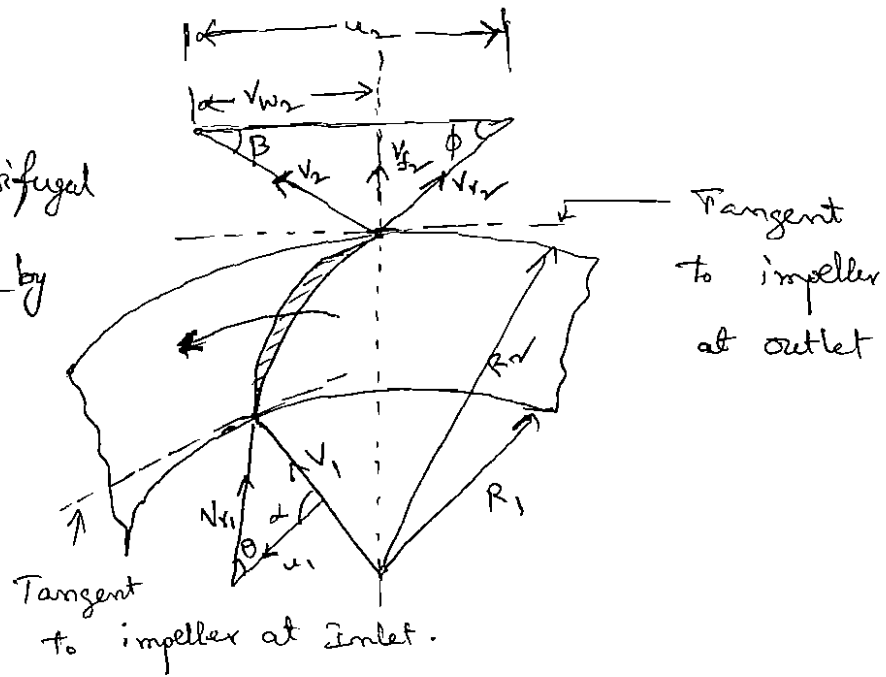 u₂
Vw₂
β
V₂
Vf₂
Vr₂
ϕ
ifugal
by
Tangent
to impeller
at outlet
R₂
R₁
V₁
Vr₁
α
θ
u₁
Tangent
to impeller at Inlet.